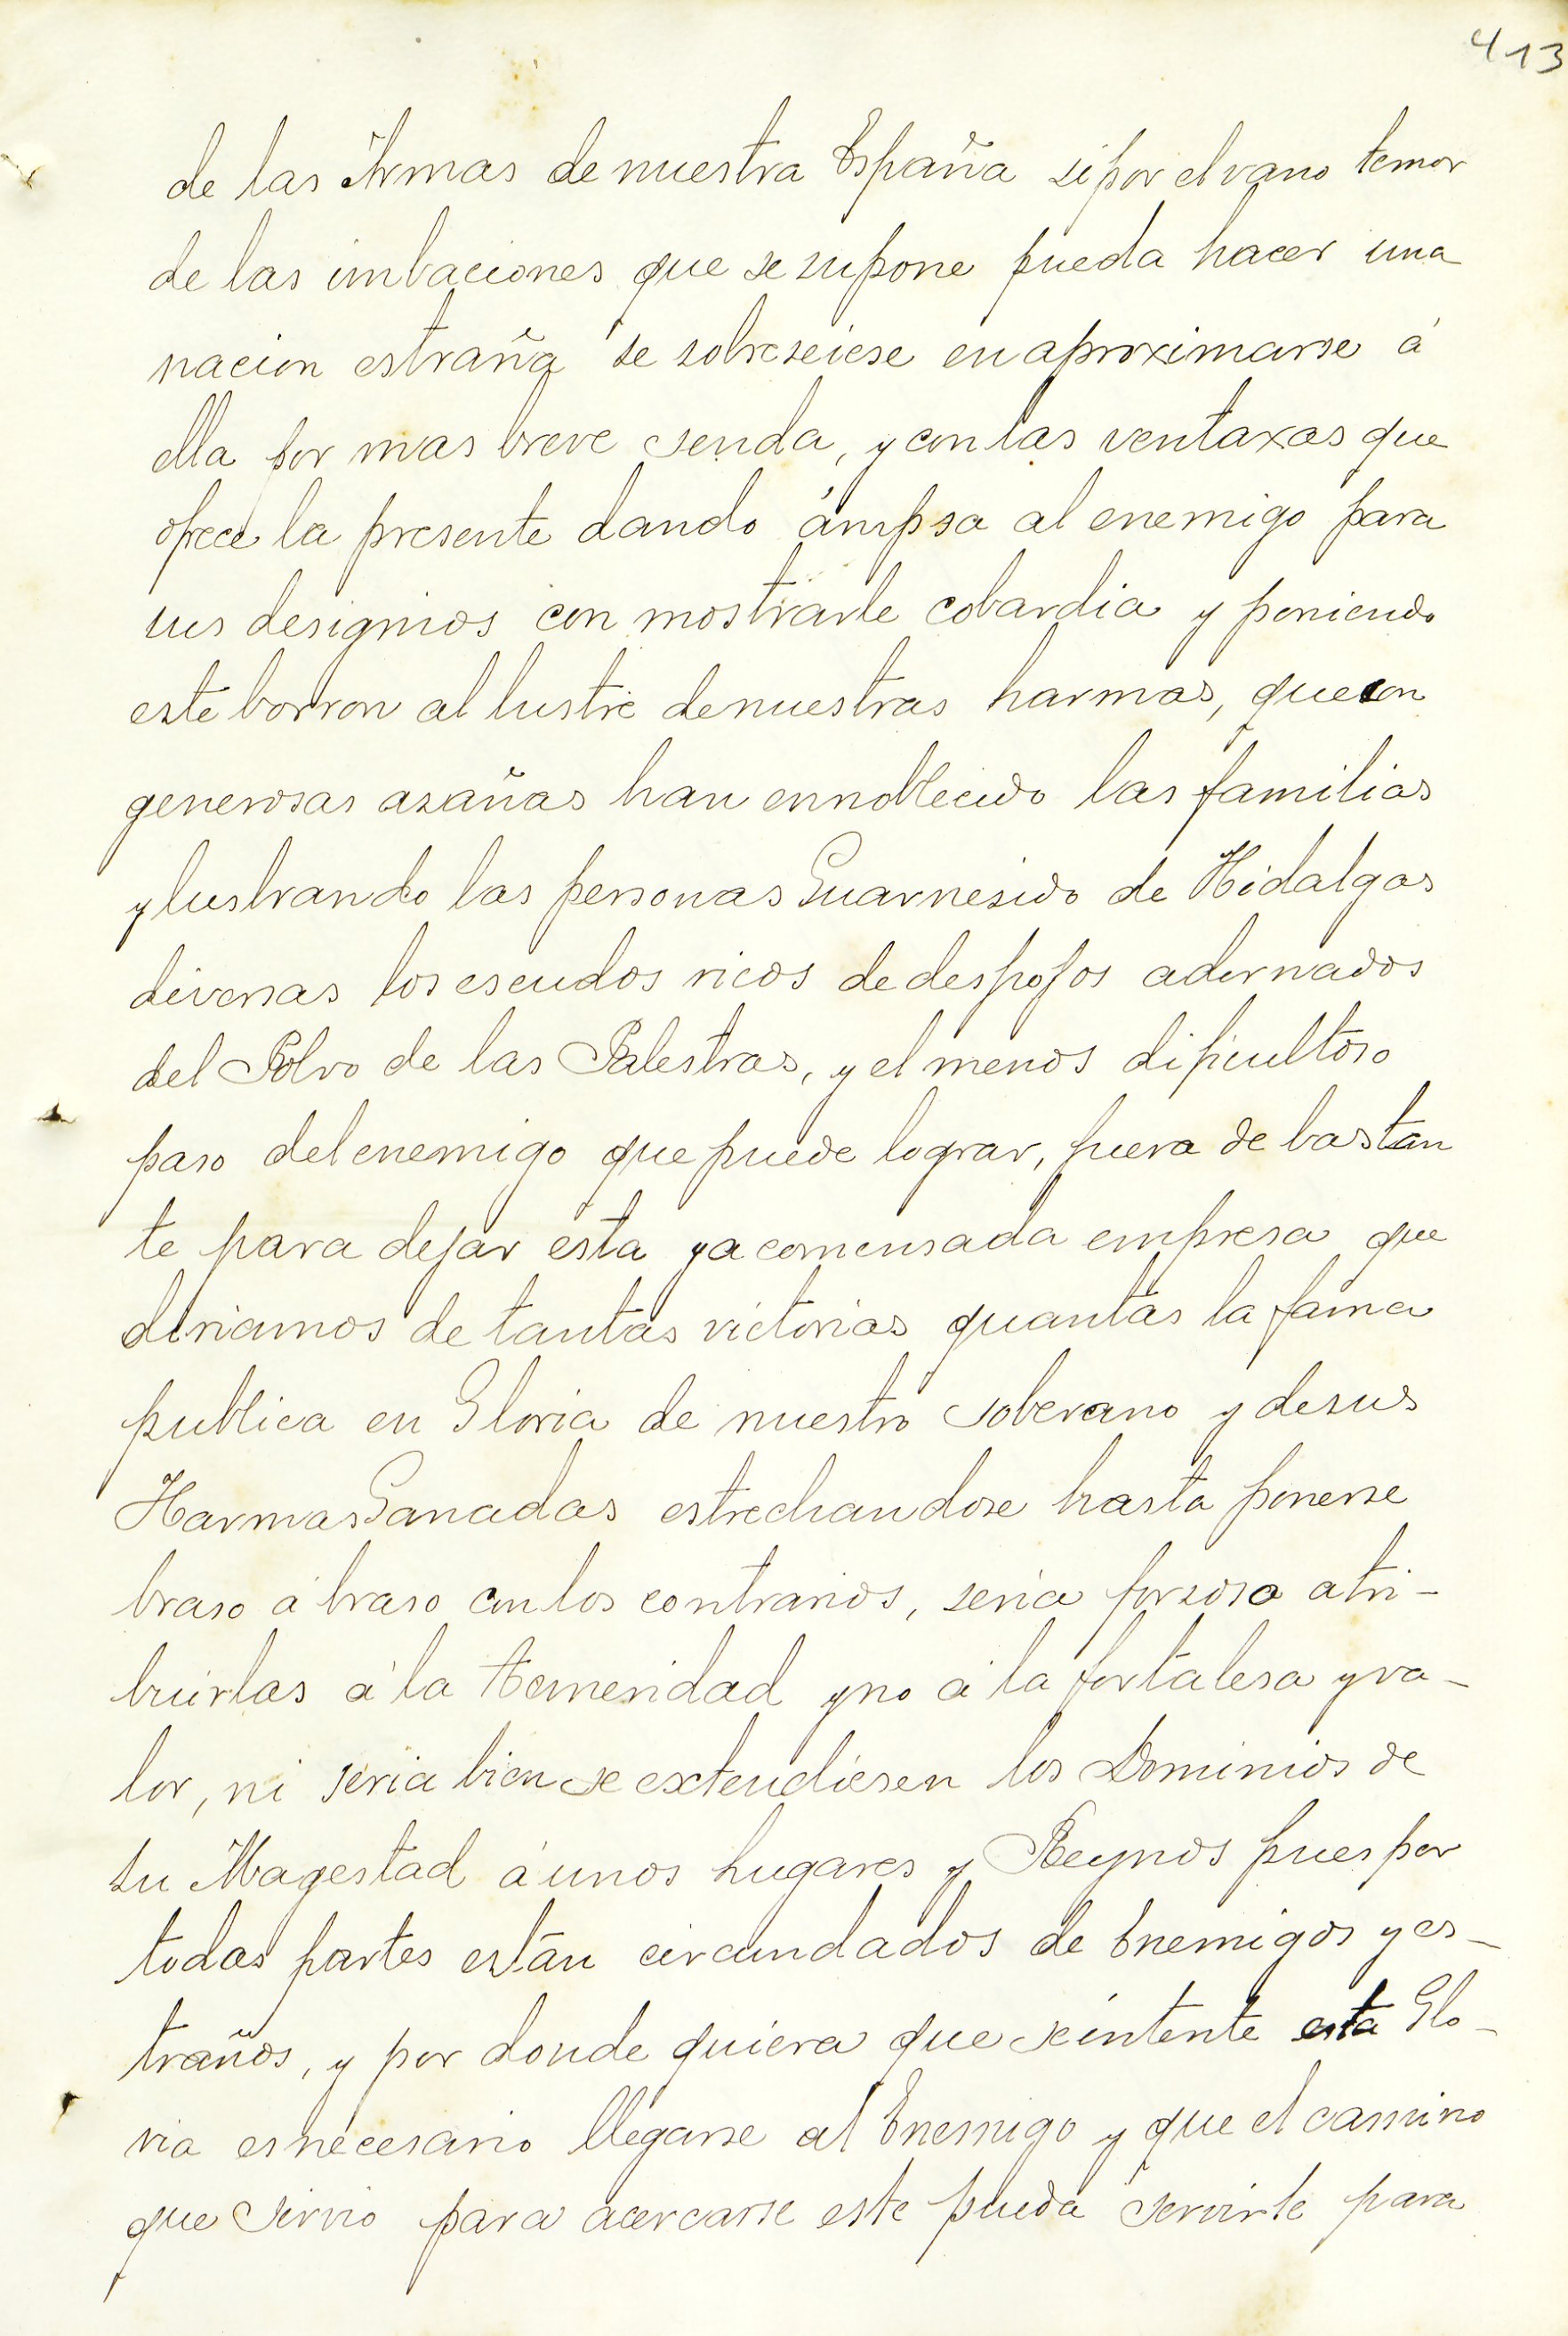 413
de las Armas de nuestra España si por el vano temor
de las imbaciones que se supone pueda hacer una
nacion estraña se sobreseiese en aproximarse á
ella por mas breve senda, y con las ventaxas que
ofrece la presente dando ánipsa al enemigo para
sus designios con mostrarle cobardia y poniendo
este borron al lustre de nuestras harmas, que con
generosas asañas han ennoblecido las familias
ylustrando las personas Guarnesido de Hidalgas
diversas los escudos ricos de despojos adornados
del Polvo de las Palestras, y el menos dificultoso
paso del enemigo que puede lograr, fuera de bastan
te para dejar esta ya comensada empresa que
diriamos de tantas victorias quantas la fama
publica en Gloria de nuestro soberano y de sus
Harmas Ganadas estrechandose hasta ponerse
braso á braso con los contrarios, seria forsoso atri-
buirlas á la temeridad y no á la fortalesa y va-
lor, ni seria bien se extendiesen los Dominios de
su Magestad á unos lugares y Reynos pues por
todas partes están circundados de Enemigos y es-
traños, y por donde quiera que se intente esta Glo-
ria es necesario llegarse al Enemigo y que el camino
que sirvio para acercarse este pueda servirle para